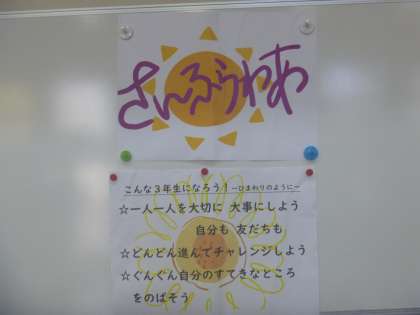 さんふらわあ
こんな3年生になろう！－ひまわりのように－
☆一人一人を大切に 大事にしよう
自分も 友だちも
☆どんどん進んでチャレンジしよう
☆ぐんぐん自分のすてきなところ
をのばそう